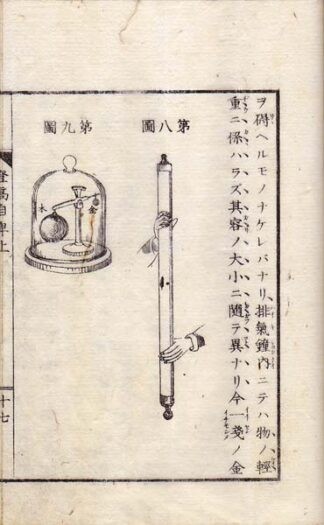 ヲ碍ヘルモノナケレバナリ、排氣鐘內ニテハ物ノ輕
重ニ係ハラズ其容ノ大小ニ隨テ異ナリ今一錢ノ金
第八圖
第九圖
金
木
登高自卑上
十七